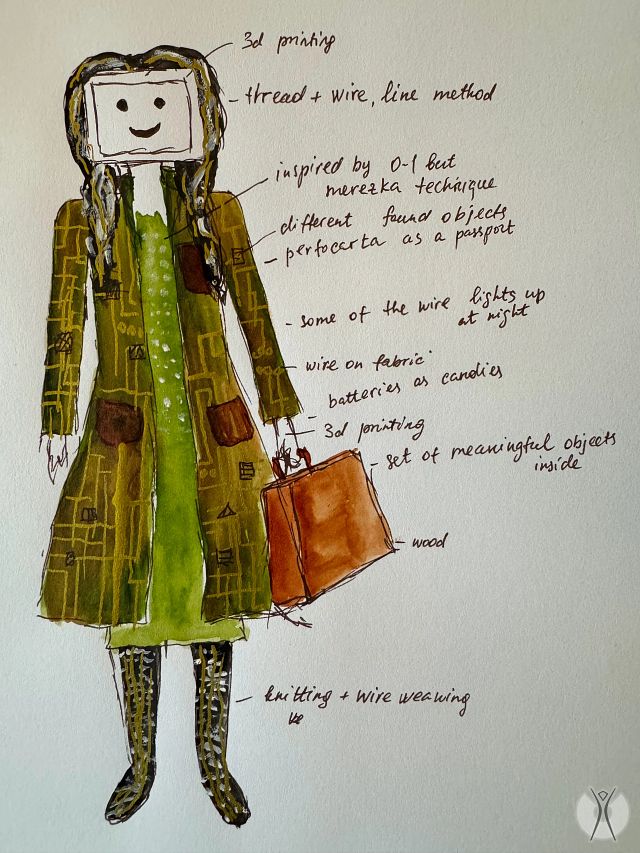 3d printing
thread + wire, line method
inspired by 0-1 but
merezka technique
different found objects
perfocarta as a passport
some of the wire lights up
at night
wire on fabric
batteries as candies
3d printing
set of meaningful objects
inside
wood
knitting + wire weawing